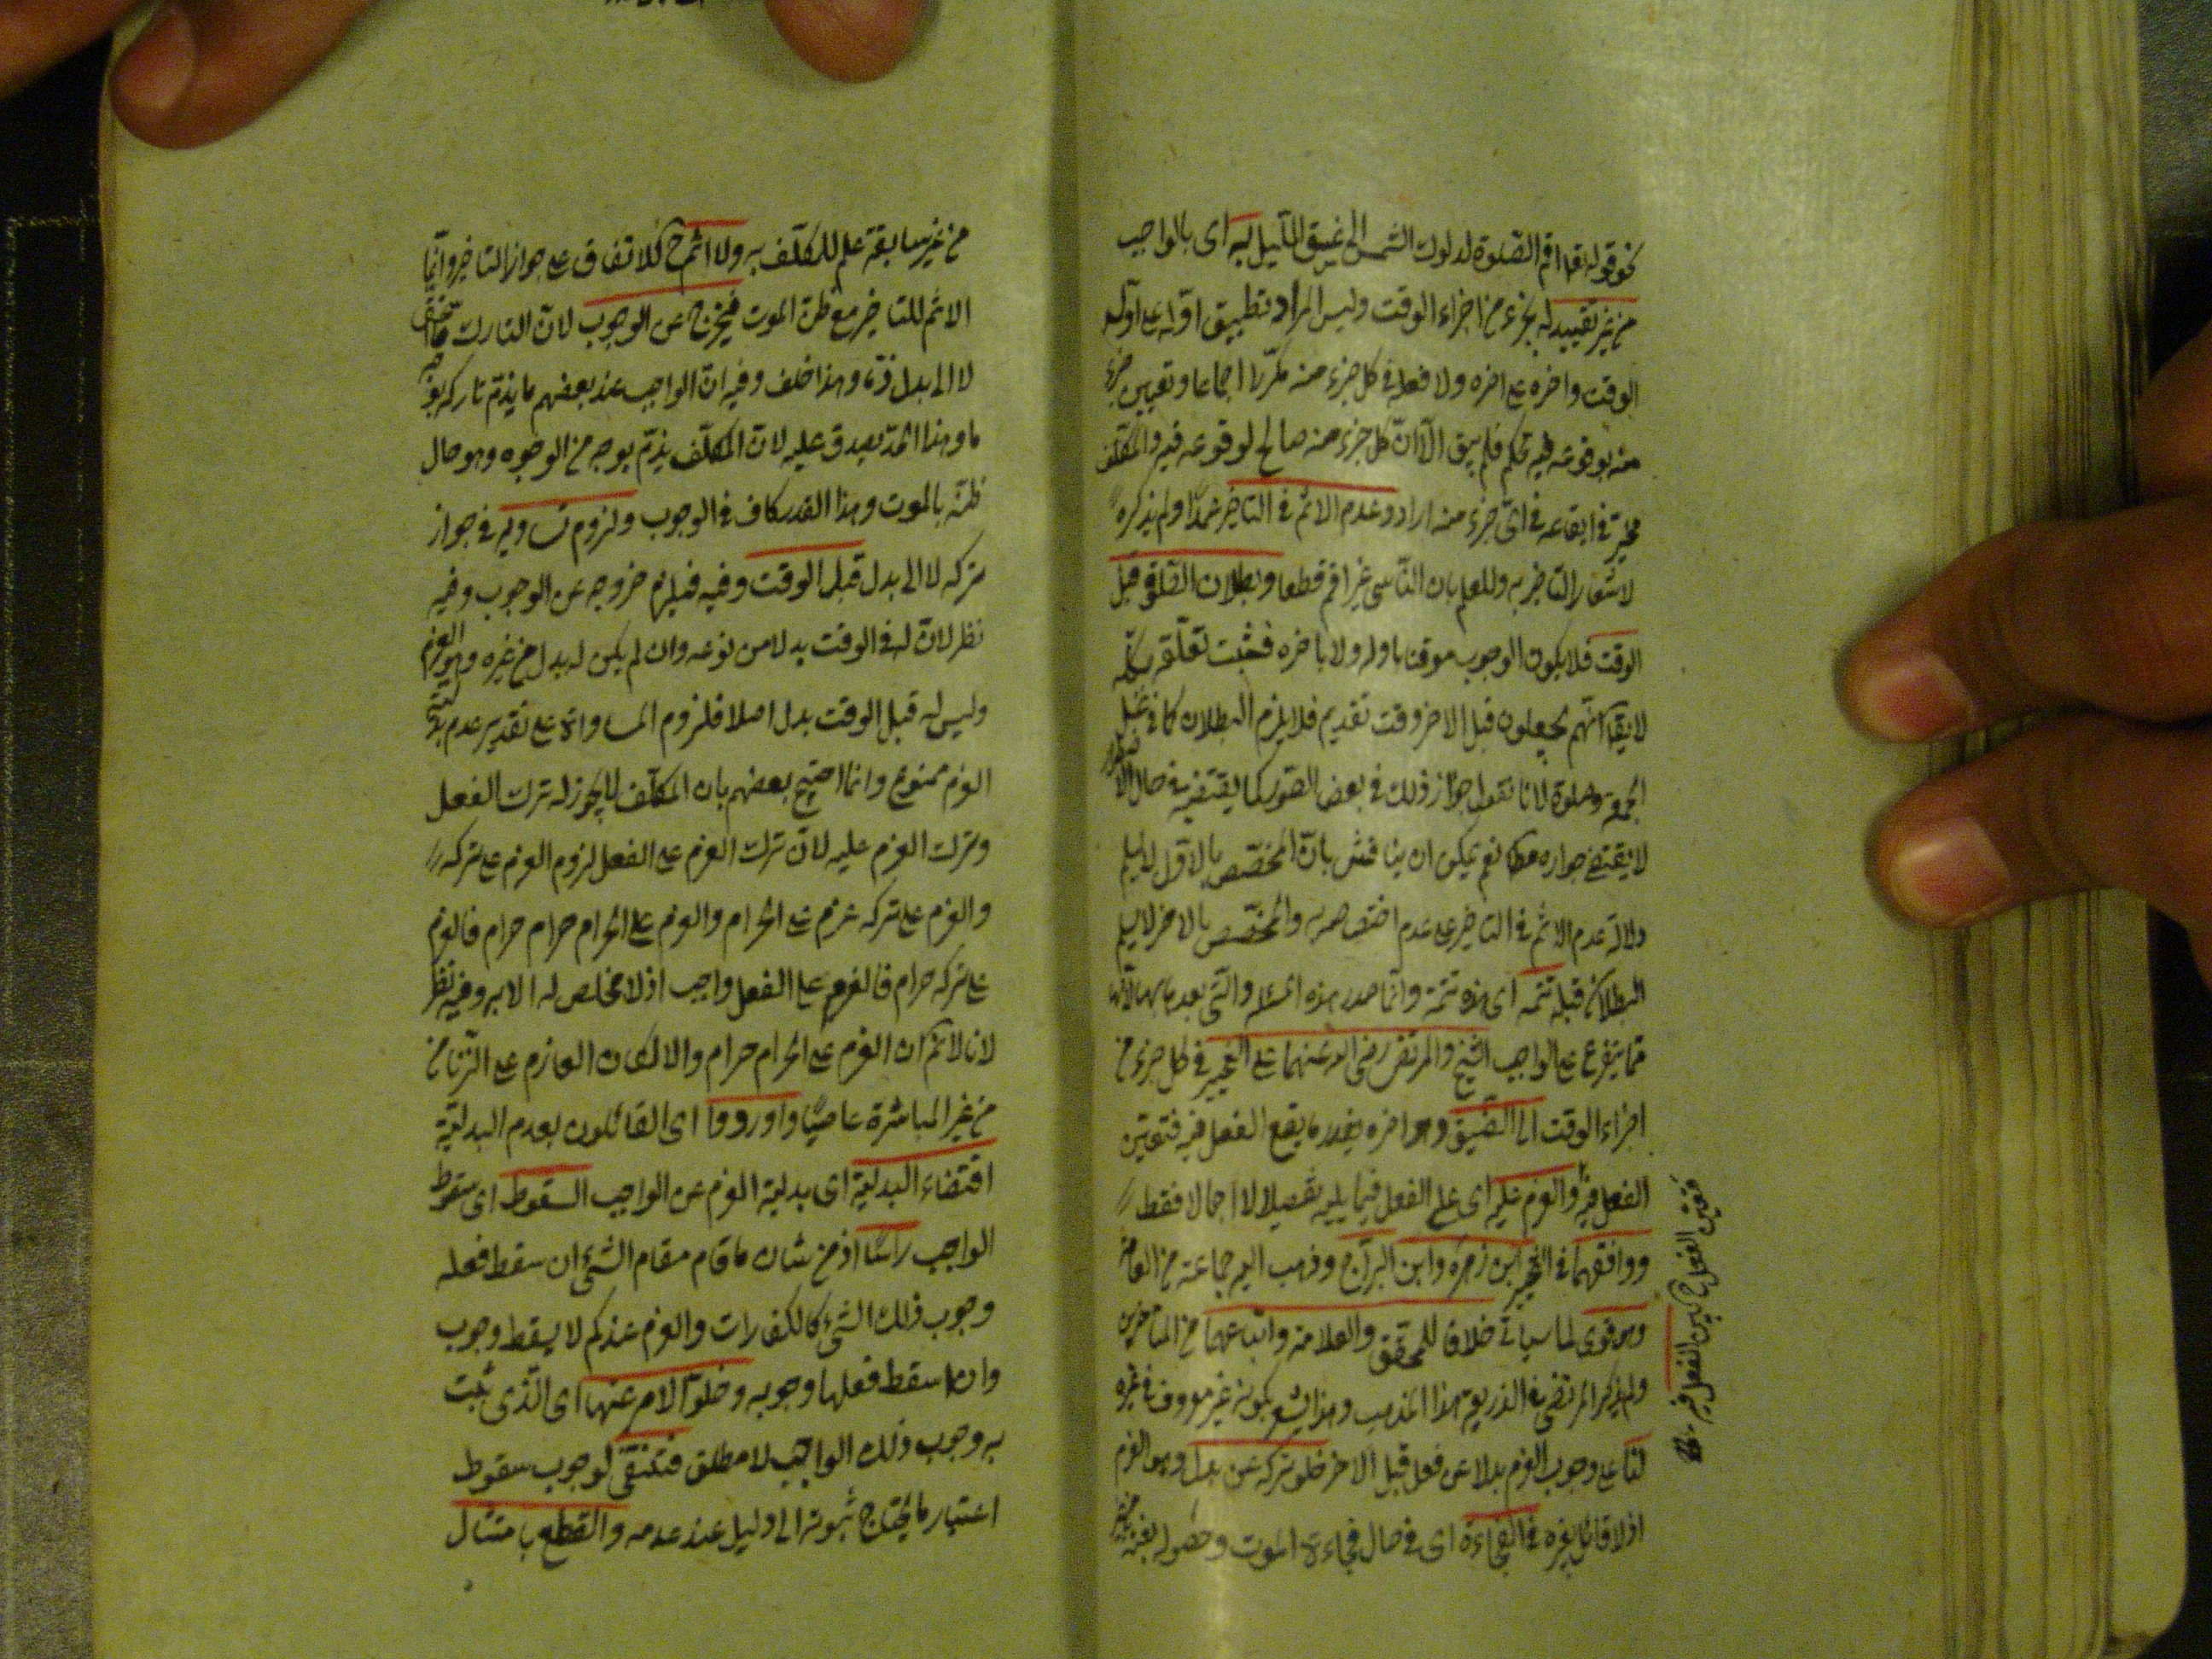 نحو قوله تعا اقم الصلوة لدلوك الشمس الى غسق الليل ليه اى بالواجب
من غير تقييد له بجزء من اجزاء الوقت وليس المراد تطبيق اوله على اول
الوقت واخره على اخره ولا فعله فى كل جزء منه مكررا اجماعا وتعيين جزء
منه بوقوعه فيه تحكم فلم يبق الا ان كل جزء منه صالح لوقوعه فيه والمكلف
مخير فى ايقاعه فى اى جزء منه اراد وعدم الاثم فى التاخير عمدا ولم يذكره
لاشعار التاخير به وللعلم بان الناسى غير اثم قطعا وبطلان الصلوة قبل
الوقت فلا يكون الوجوب موقتا باوله ولا باخره فثبت تعلقه بكله
لا يقال انهم يجعلون قبل الاخر وقت تقديم فلا يلزم البطلان كما فى غسل
الجمعة وصلوة لانا نقول جواز ذلك فى بعض الصور كما يقتضيه فى حال
لا يقتضى جوازه مطلقا نعم يمكن ان يناقش بان المخصص بالاول لا يسلم
دلالة عدم الاثم فى التاخير على عدم اختصاصه به والمخصص بالاخر لا يسلم
البطلان قبله تتمه اى هذه تتمة وانما صدر هذه المسئلة والتى بعدها بها لانها
مما يتفرع على الواجب الشيخ والمرتضى رضى الله عنهما على التخيير فى كل جزء من
اجزاء الوقت الى التضيق وهو اخره بقدر ما يقع الفعل فيه فتعين
الفعل فيه والعزم عليه اى على الفعل فيما يليه تفصيلا لا اجمالا فقط
ووافقهما فى التخيير ابن زهره وابن البراج وذهب اليه جماعة من العامة
وهو قوى لما سياتى خلافا للمحقق والعلامة واتباعهما من المتاخرين
ولم يذكر المرتضى فى الذريعة هذا المذهب وهذا يشعر بكونه غير معروف فى عصره
لنا على وجوب العزم بدلا عن فعله قبل الاخر خلو تركه عن بدل وهو العزم
اذ لا قائل بغيره فى الفجاءة اى فى حال فجاءة الموت وحصوله بغتة
فتعين الفعل ح بين الفعل فيه
من غير سابقة علم للمكلف به ولا اثم ح للاتفاق على جواز التاخير وانما
الاثم للتاخير مع ظن الموت فيخرج عن الوجوب لان التارك
لا الى بدل ذما وهذا خلف وفيه ان الواجب عند بعضهم ما يذم تاركه بوجه
ما وهذا الحد يصدق عليه لان المكلف يذم بوجه من الوجوه وهو حال
ظنه بالموت وهذا القدر كاف فى الوجوب ولزوم تساويه فى جواز
تركه لا الى بدل قبل الوقت وفيه فيلزم خروجه عن الوجوب وفيه
نظر لان له فى الوقت بدلا من نوعه وان لم يكن له بدل من غيره وهو العزم
وليس له قبل الوقت بدل اصلا فلزوم المساواة على تقدير عدم بدلية
العزم ممنوع وانما احتج بعضهم بان المكلف لا يجوز له ترك الفعل
وترك العزم عليه لان ترك العزم على الفعل لزوم العزم على تركه
والعزم على تركه عزم على الحرام والعزم على الحرام حرام حرام فالعزم
على تركه حرام فالعزم على الفعل واجب اذ لا مخلص له الا به وفيه نظر
لانا لا نم ان العزم على الحرام حرام والا لكان العازم على الزنا من
من غير المباشرة عاصيا واوردوا اى القائلون بعدم البدلية
اقتضاء البدلية اى بدلية العزم عن الواجب السقوط اى سقوط
الواجب راسا اذ من شان ما قام مقام الشئ ان سقط فعله
وجوب ذلك الشئ كالكفارات والعزم عندكم لا يسقط وجوب
وان سقط فعلها وجوبه وخلو الامر عنها اى الذى ثبت
به وجوب ذلك الواجب لا مطلق فتنتفى لوجوب سقوط
اعتبار ما يحتاج ثبوته الى دليل عند عدمه والقطع بامتثال